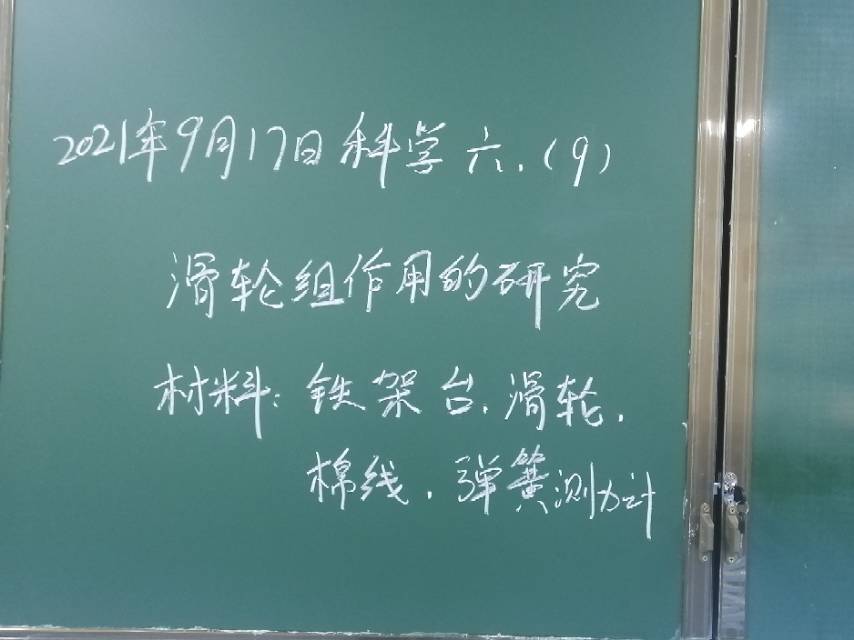 2021年9月17日 科学 六.(9)
滑轮组作用的研究
材料:铁架台.滑轮.
棉线.弹簧测力计